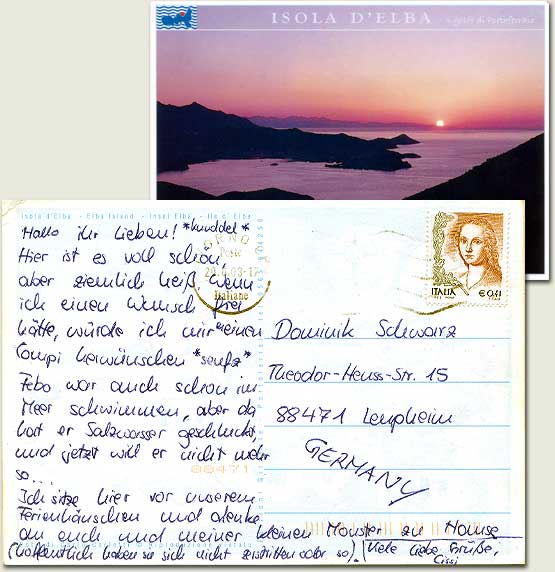 ISOLA D'ELBA
Isola d'Elba - Elba Island - Insel Elba - Ile d' Elbe
Hallo ihr Lieben! *knuddel*
Hier ist es voll schön,
aber ziemlich heiß. Wenn
ich einen Wunsch frei
hätte, würde ich mir meinen
Compi herwünschen *seufz*
Febo war auch schon im
Meer schwimmen, aber da
hat er Salzwasser geschluckt,
und jetzt will er nicht mehr
so...
Ich sitze hier vor unserem
Ferienhäuschen und denke
an euch und meiner kleinen Monster zu Hause
(hoffentlich haben sie sich nicht zerstritten oder so). Viele liebe Grüße,
Cissi
Italiane
ITALIA
€ 0,41
Dominik Schwarz
Theodor-Heuss-Str. 15
88471 Laupheim
GERMANY
88471